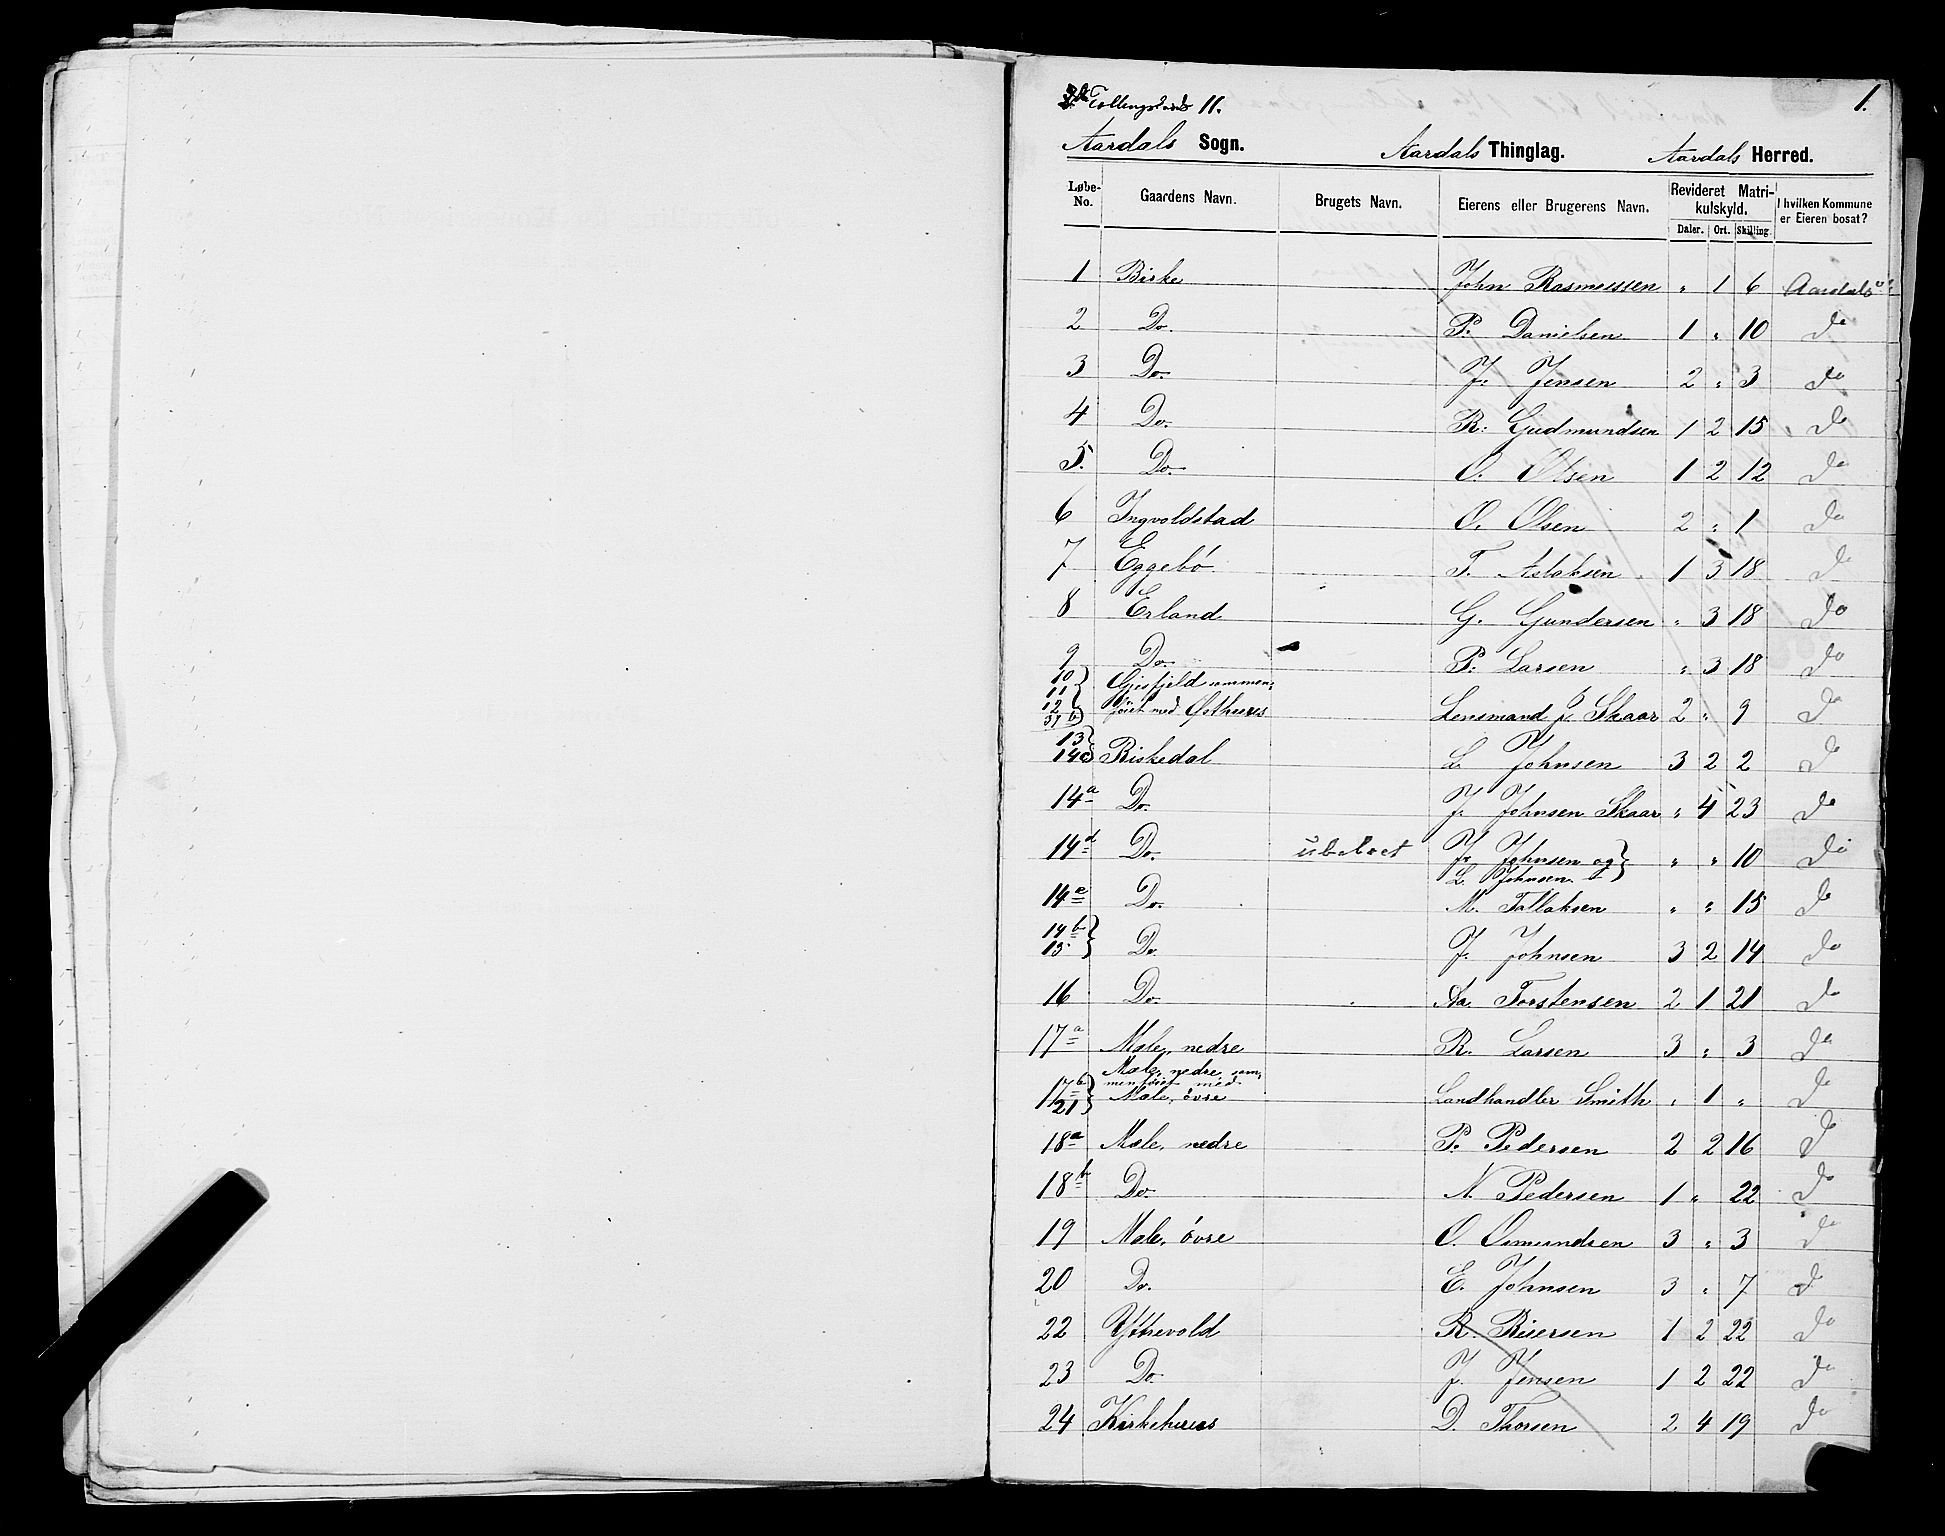 Tællingskreds 11.
1.
Aardals Sogn. Aardals Thinglag. Aardals Herred.
Løbe-No. Gaardens Navn. Brugets Navn. Eierens eller Brugerens Navn. Revideret Matrikulskyld. Daler. Ort. Skilling. I hvilken Kommune er Eieren bosat?
1 Riske John Rasmussen " 1 6 Aardals
2 Do. P. Danielsen 1 " 10 do
3 Do. J. Jensen 2 " 3 do
4 Do. R. Gudmundsen 1 2 15 do
5. Do. O. Olsen 1 2 12 do
6 Ingvoldstad O. Olsen 2 " 1 do
7 Eggebö T. Aslaksen 1 3 18 do
8 Erland G. Gundersen " 3 18 do
9 Do. P. Larsen " 3 18 do
10 Gjesfjeld sammen-
11
12 föiet med Østhuus Lensmand J. Skaar 2 " 9 do
31 b
13
14c Riskedal L. Johnsen 3 2 2 do
14a Do. J. Johnsen Skaar " 4 23 do
14d Do. ubeboet J. Johnsen og " " 10 do
L. Johnsen
14e Do. M. Tollaksen " " 15 do
14b
15. Do. J. Johnsen 3 2 14 do
16 Do. Aa. Torstensen 2 1 21 do
17a Mæle, nedre R. Larsen 3 " 3 do
Mæle, nedre sam-
17b menföiet med
21 Mæle, övre Landhandler Smith " 1 " do
18a Mæle, nedre P. Pedersen 2 2 16 do
18b Do. N. Pedersen 1 " 22 do
19 Mæle, övre O. Osmundsen 3 " 3 do
20 Do. E. Johnsen 3 " 7 do
22 Yttrevold R. Biersen 1 2 22 do
23 Do. J. Jensen 1 2 22 do
24 Kirkehuus D. Thorsen 2 4 19 do